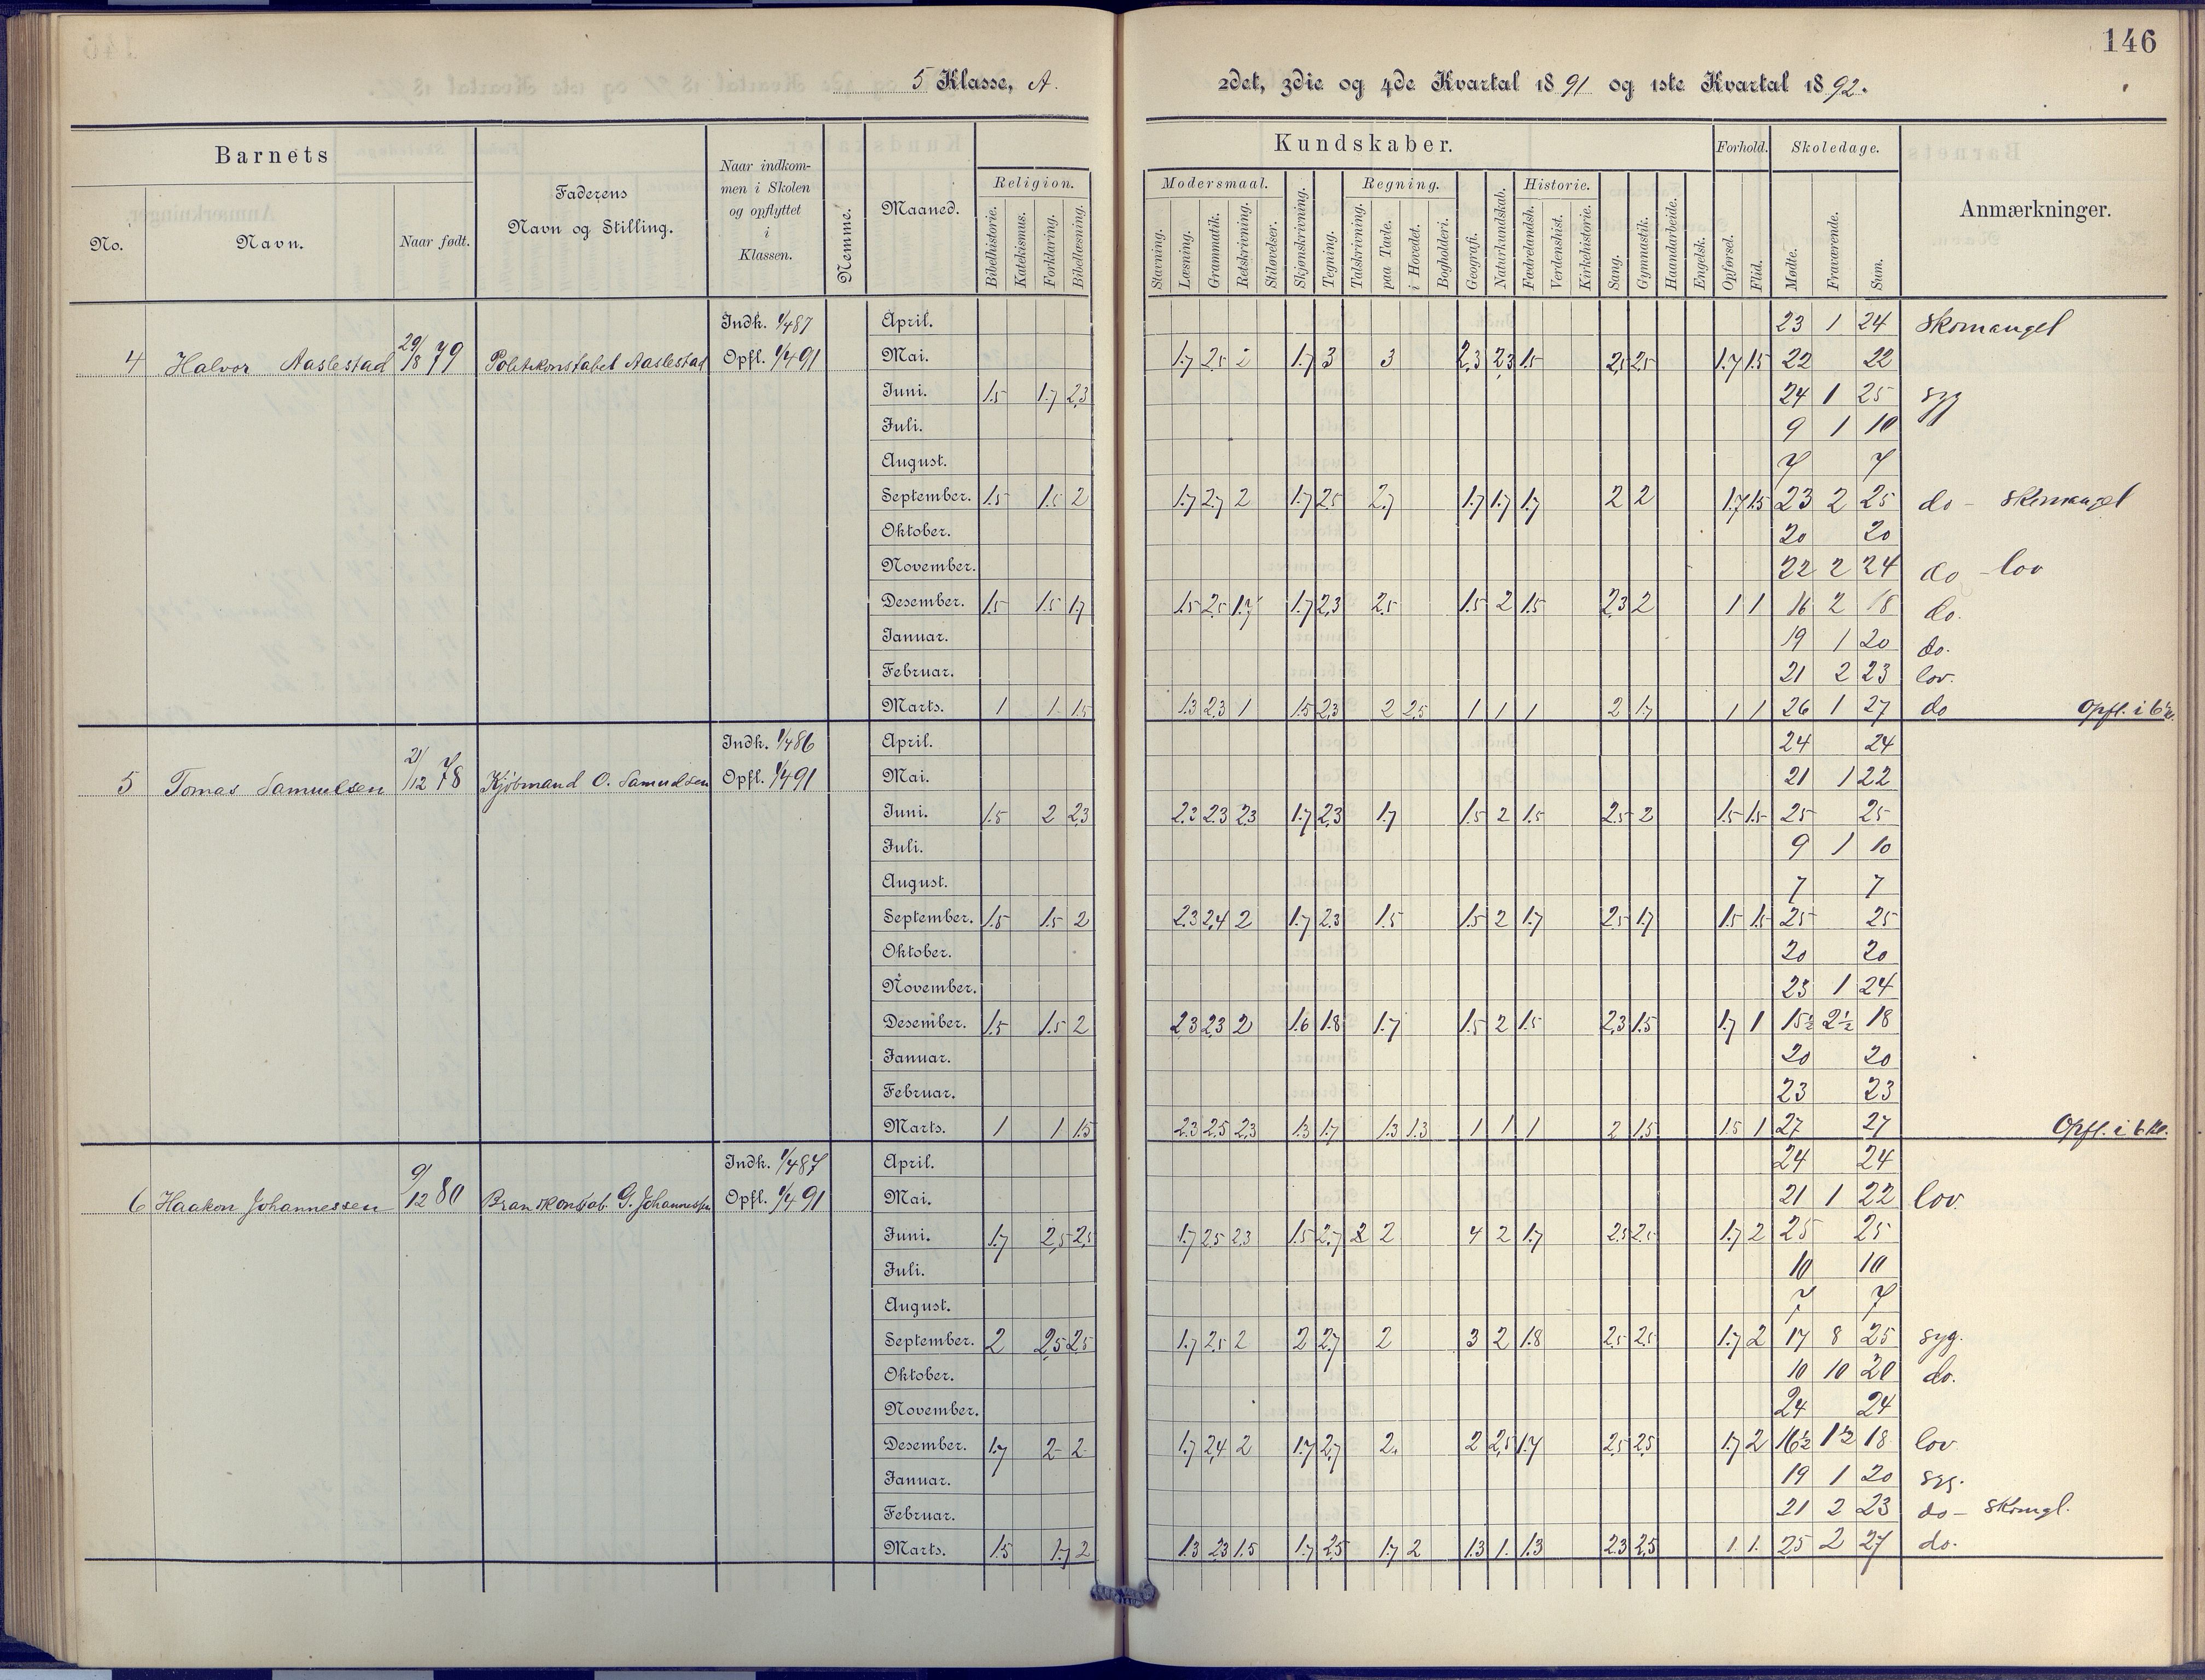 146
5 Klasse, A.
2det, 3die og 4de Kvartal 1891 og 1ste Kvartal 1892.
Barnets
No.
Navn.
Naar født.
Faderens
Navn og Stilling.
Naar indkom-
men i Skolen
og opflyttet
i
Klassen.
Nemme.
Maaned.
Kundskaber.
Religion.
Bibelhistorie. Katekismus. Forklaring. Bibellæsning.
Modersmaal.
Stavning. Læsning. Grammatik. Retskrivning. Stiløvelser.
Skjønskrivning. Tegning.
Regning.
Talskrivning. paa Tavle. i Hovedet. Bogholderi.
Geografi. Naturkundskab.
Historie.
Fædrelandsh. Verdenshist. Kirkehistorie.
Sang. Gymnastik. Haandarbeide. Engelsk.
Forhold.
Opførsel. Flid.
Skoledage.
Mødte. Fraværende. Sum.
Anmærkninger.
4 Halvor Aaslestad 29/8 79 Politikonstabel Aaslestad Indk. 1/4 87
Opfl. 1/4 91
April. 23 1 24 Skomangel
Mai. 1.7 2.5 2 1.7 3 3 2.3 2.3 1.5 2.5 2.5 1.7 1.5 22 22
Juni. 1.5 1.7 2.3 24 1 25 syg
Juli. 9 1 10
August. 7 7
September. 1.5 1.5 2 1.7 2.7 2 1.7 2.5 2.7 1.7 1.7 1.7 2 2 1.7 1.5 23 2 25 do - Skomangel
Oktober. 20 20
November. 22 2 24 do - lov
Desember. 1.5 1.5 1.7 1.5 2.5 1.7 1.7 2.3 2.5 1.5 2 1.5 2.3 2 1 1 16 2 18 do.
Januar. 19 1 20 do.
Februar. 21 2 23 lov.
Marts. 1 1 1.5 1.3 2.3 1 1.5 2.3 2 2.5 1 1 1 2 1.7 1 1 26 1 27 do Opfl. i 6 kl.
5 Tomas Samuelsen 21/12 78 Kjöbmand O. Samuelsen Indk. 1/4 86
Opfl. 1/4 91
April. 24 24
Mai. 21 1 22
Juni. 1.5 2 2.3 2.3 2.3 2.3 1.7 2.3 1.7 1.5 2 1.5 2.5 2 1.5 1.5 25 25
Juli. 9 1 10
August. 7 7
September. 1.5 1.5 2 2.3 2.4 2 1.7 2.3 1.5 1.5 2 1.7 2.5 1.7 1.5 1.5 25 25
Oktober. 20 20
November. 23 1 24
Desember. 1.5 1.5 2 2.3 2.3 2 1.6 1.8 1.7 1.5 2 1.5 2.3 1.5 1.7 1 15½ 2½ 18
Januar. 20 20
Februar. 23 23
Marts. 1 1 1.5 2.3 2.5 2.3 1.3 1.7 1.3 1.3 1 1 1 2 1.5 1.5 1 27 27 Opfl. i 6 kl.
6 Haakon Johannessen 9/12 80 Brandkonstab. G. Johannessen Indk. 1/4 87
Opfl. 1/4 91
April. 24 24
Mai. 21 1 22 lov.
Juni. 1.7 2.5 2.5 1.7 2.5 2.3 1.5 2.7 2 2 4 2 1.7 2.5 2.5 1.7 2 25 25
Juli. 10 10
August. 7 7
September. 2 2.5 2.5 1.7 2.5 2 2 2.7 2 3 2 1.8 2.5 2.5 1.7 2 17 8 25 syg.
Oktober. 10 10 20 do.
November. 24 24
Desember. 1.7 2 2 1.7 2.4 2 1.7 2.7 2. 2 2.5 1.7 2.5 2.5 1.7 2 16½ 1½ 18 lov
Januar. 19 1 20 syg.
Februar. 21 2 23 do - Skomgl.
Marts. 1.5 1.7 2 1.3 2.3 1.5 1.7 2.5 1.7 2 1.3 1. 1.3 2.3 2.5 1. 1. 25 2 27 do.